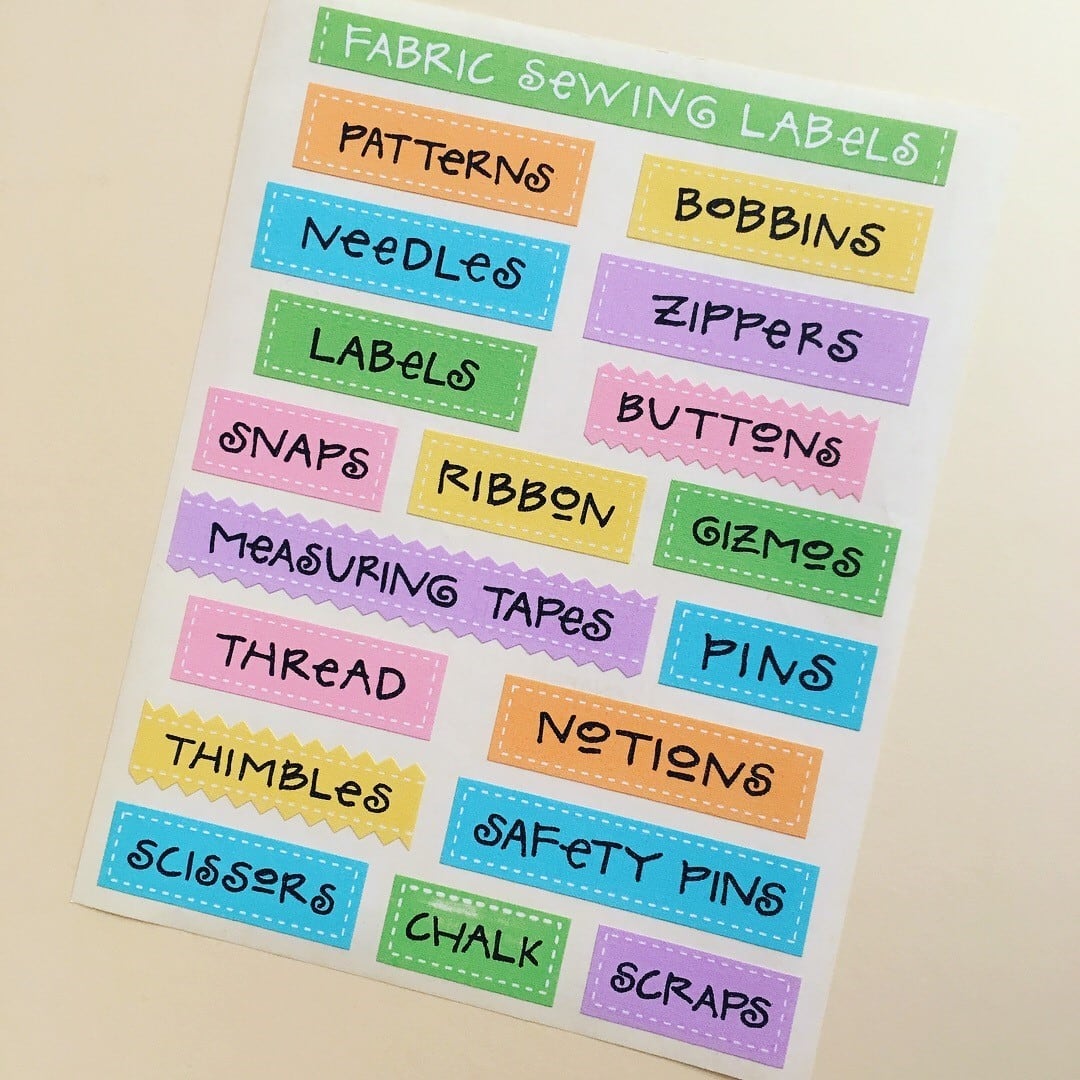 FABRIC SeWING LABeLS
PATTeRNS
BOBBINS
NeeDLeS
ZIPPeRS
LABeLS
BUTTONS
SNAPS
RIBBON
GIZMOS
MeASURING TAPeS
PINS
THReAD
NOTIONS
THIMBLeS
SAFeTY PINS
SCISSORS
CHALK
SCRAPS